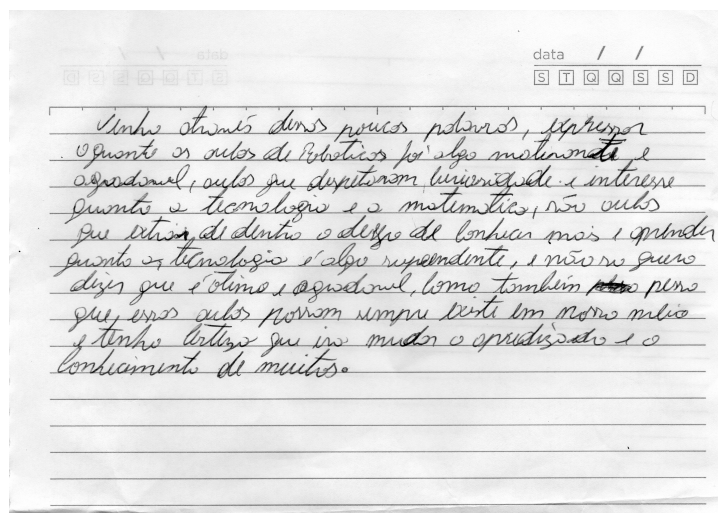 data / /
S T Q Q S S D
Venho através dessas poucas palavras, expressar
o quanto as aulas de Roboticas foi algo
agradavel, aulas que despetaram curiosidade e interesse
quanto a tecnologia e a matematica, são aulas
que extrai de dentro o desejo de conhecer mais e aprender
quanto as tecnologia é algo surpeendente, e não so quero
dizer que é ótimo e agradavel, como também peço
que essas aulas possam sempre existe em nosso meio
e tenho certeza que ira mudar o apredizado e o
conhecimento de muitos.